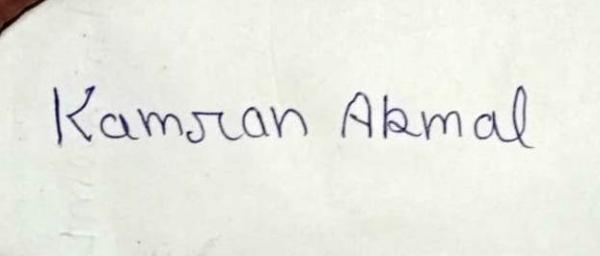 Kamran Akmal